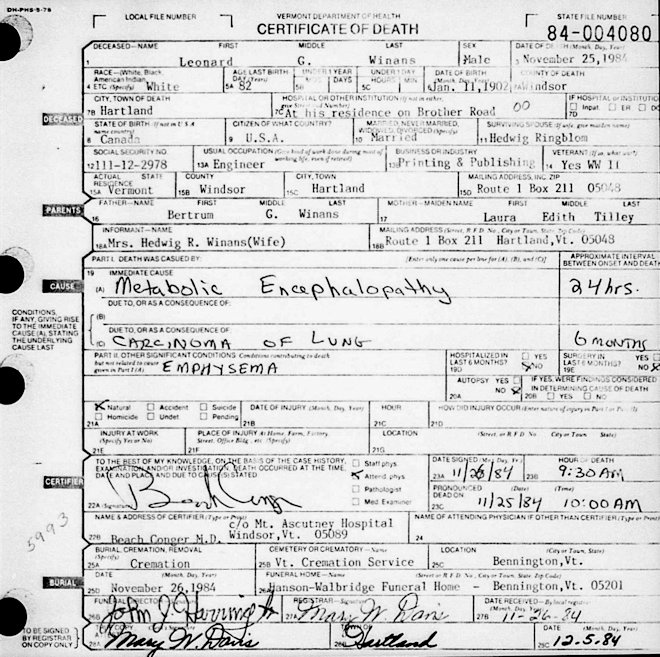 DH-PHS-5-78
LOCAL FILE NUMBER
VERMONT DEPARTMENT OF HEALTH
STATE FILE NUMBER
CERTIFICATE OF DEATH
84-004080
DECEASED—NAME FIRST MIDDLE LAST SEX DATE OF DEATH (Month, Day, Year)
Leonard G. Winans Male November 25, 1984
RACE—(White, Black, American Indian, Etc. (Specify) AGE LAST BIRTHDAY (Years) UNDER 1 YEAR UNDER 1 DAY DATE OF BIRTH (Month, Day, Year) COUNTY OF DEATH
4 White 5A 82 5B MOS DAYS 5C HOURS MIN Jan. 11, 1902 Windsor
CITY, TOWN OF DEATH HOSPITAL OR OTHER INSTITUTION (If not in either, give Street and Number) IF HOSPITAL OR INSTITUTION
7B Hartland 7C At his residence on Brother Road 00 7D Inpat. ER
DECEASED
STATE OF BIRTH (If not in U.S.A. name country) CITIZEN OF WHAT COUNTRY? MARRIED, NEVER MARRIED, WIDOWED, DIVORCED (Specify) SURVIVING SPOUSE (If wife, give maiden name)
8 Canada 9 U.S.A. 10 Married 11 Hedwig Ringblom
SOCIAL SECURITY NO. USUAL OCCUPATION (Give kind of work done during most of working life, even if retired) BUSINESS OR INDUSTRY VETERAN (If so, what war?)
12 111-12-2978 13A Engineer 13B Printing & Publishing 14 Yes WW II
ACTUAL RESIDENCE STATE COUNTY CITY, TOWN MAILING ADDRESS, INC. ZIP
15A Vermont 15B Windsor 15C Hartland 15D Route 1 Box 211 05048
PARENTS
FATHER—NAME FIRST MIDDLE LAST MOTHER—MAIDEN NAME FIRST MIDDLE LAST
16 Bertrum G. Winans 17 Laura Edith Tilley
INFORMANT—NAME MAILING ADDRESS (Street, or R.F.D. No., City or Town, State, Zip Code)
18A Mrs. Hedwig R. Winans(Wife) 18B Route 1 Box 211 Hartland,Vt. 05048
PART I. DEATH WAS CAUSED BY: (Enter only one cause per line for (A), (B), and (C)) APPROXIMATE INTERVAL BETWEEN ONSET AND DEATH
19 IMMEDIATE CAUSE
CAUSE
(A) Metabolic Encephalopathy 24 hrs.
DUE TO, OR AS A CONSEQUENCE OF:
CONDITIONS, IF ANY, GIVING RISE TO THE IMMEDIATE CAUSE (A), STATING THE UNDERLYING CAUSE LAST
(B)
DUE TO, OR AS A CONSEQUENCE OF
(C) CARCINOMA OF LUNG 6 MONTHS
PART II. OTHER SIGNIFICANT CONDITIONS Conditions contributing to death but not related to cause given in Part I (A) HOSPITALIZED IN LAST 6 MONTHS? YES NO SURGERY IN LAST 6 MONTHS? YES NO
EMPHYSEMA 19D 19E
AUTOPSY YES NO IF YES, WERE FINDINGS CONSIDERED IN DETERMINING CAUSE OF DEATH
20A 20B YES NO
Natural Accident Suicide DATE OF INJURY (Month, Day, Year) HOUR HOW DID INJURY OCCUR (Enter nature of injury in Part I or Part II)
Homicide Undet. Pending
21A 21B 21C 21D
INJURY AT WORK (Specify Yes or No) PLACE OF INJURY At Home, Farm, Factory, Street, Office Bldg., etc. (Specify) LOCATION (Street, or R.F.D. No. City or Town State)
21E 21F 21G
TO THE BEST OF MY KNOWLEDGE, ON THE BASIS OF THE CASE HISTORY, EXAMINATION AND/OR INVESTIGATION, DEATH OCCURRED AT THE TIME, DATE AND PLACE AND DUE TO CAUSE(S) STATED
Staff phys. Attend. phys. Pathologist Med. Examiner
DATE SIGNED (Month, Day, Year) HOUR OF DEATH
23A 11/26/84 23B 9:30 AM
CERTIFIER
PRONOUNCED DEAD ON (Month, Day, Year) HOUR
22A (Signature) Beach Conger 23C 11/25/84 10:00 AM
5993
NAME & ADDRESS OF CERTIFIER (Type or Print) NAME OF ATTENDING PHYSICIAN IF OTHER THAN CERTIFIER (Type or Print)
c/o Mt. Ascutney Hospital
22B Beach Conger M.D. Windsor,Vt. 05089 24
BURIAL, CREMATION, REMOVAL (Specify) CEMETERY OR CREMATORY—Name LOCATION (City or Town, State)
25A Cremation 25B Vt. Cremation Service 25C Bennington,Vt.
BURIAL
DATE (Month, Day, Year) FUNERAL HOME—Name (Street or R.F.D. No., City or Town, State, Zip Code)
25D November 26,1984 26A Hanson-Walbridge Funeral Home - Bennington,Vt. 05201
FUNERAL DIRECTOR REGISTRAR—Signature DATE RECEIVED—By local registrar (Month, Day, Year)
John J. Herring Jr 27A Mary W. Davis 27B 11-26-84
TO BE SIGNED BY REGISTRAR ON COPY ONLY
28A Mary W. Davis 28B Hartland 28C 12.5.84